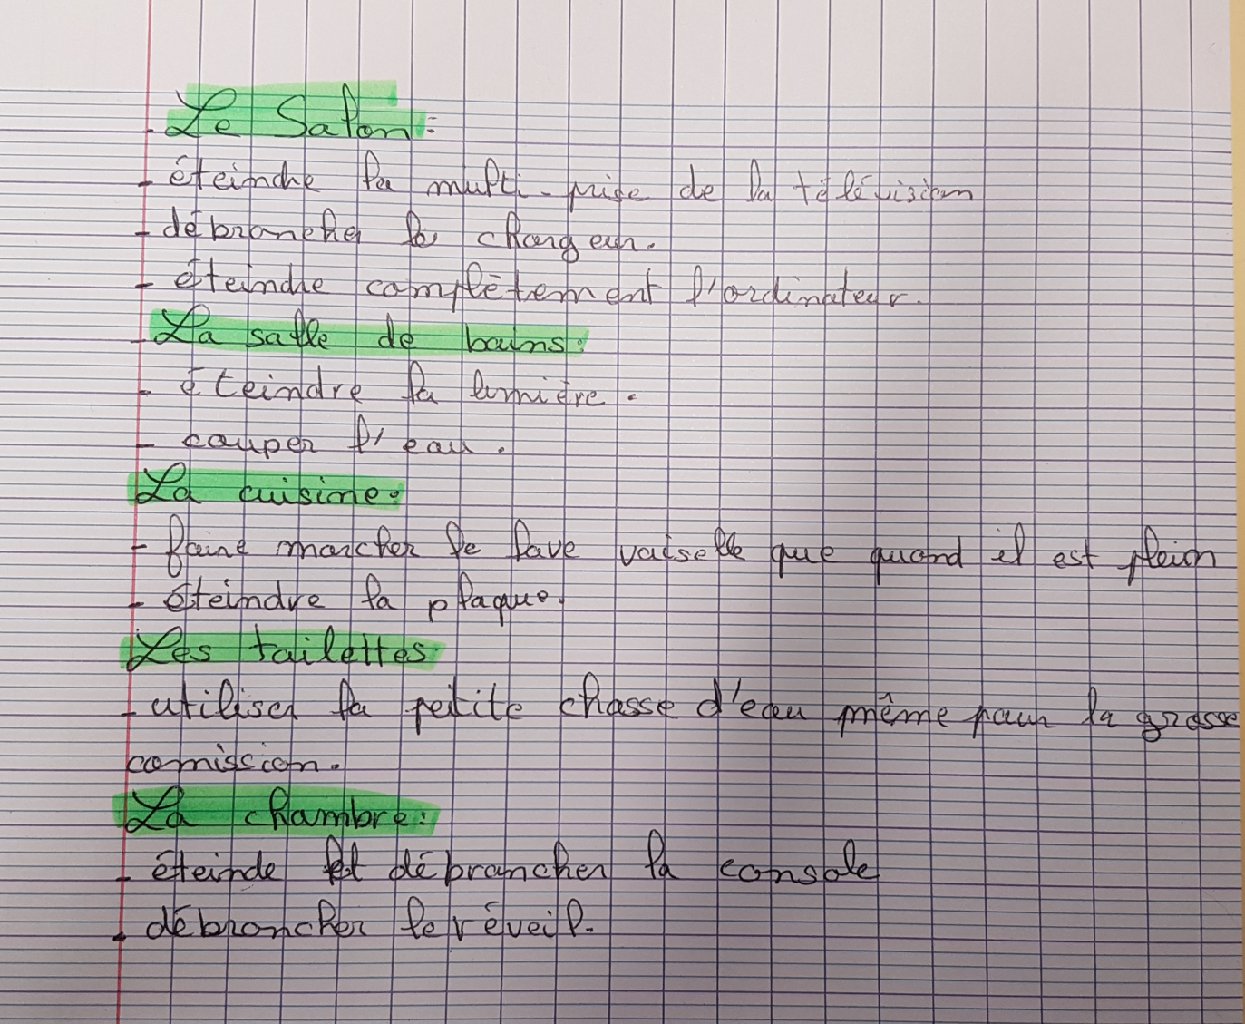 - Le Salon:
- éteindre la multi-prise de la télévision
- débrancher le chargeur.
- éteindre complètement l'ordinateur.
- La salle de bains:
- éteindre la lumière.
- couper l'eau.
La cuisine:
- faire marcher le lave vaiselle que quand il est plein
- éteindre la plaque.
Les toilettes
- utiliser la petite chasse d'eau même pour la grosse
comission.
La chambre:
- éteinde et débrancher la console
- débrancher le réveil.